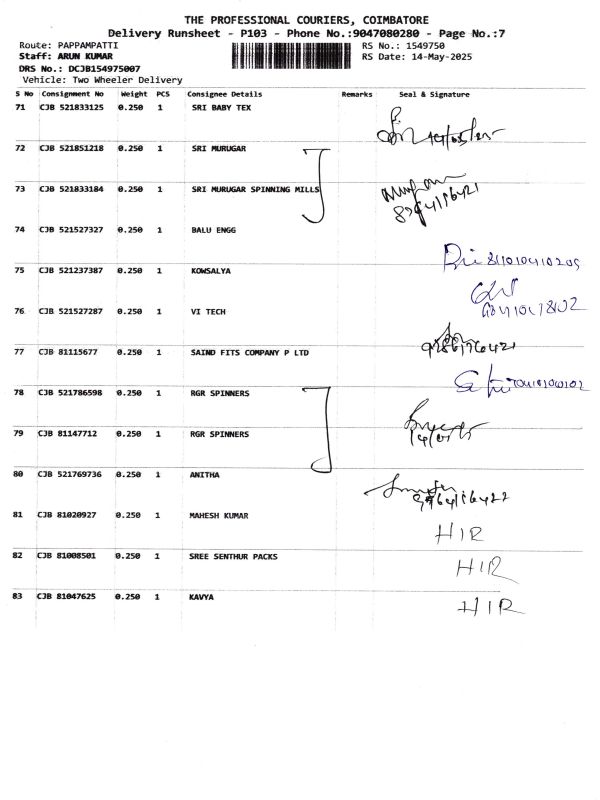 THE PROFESSIONAL COURIERS, COIMBATORE
Delivery Runsheet - P103 - Phone No.:9047080280 - Page No.:7
Route: PAPPAMPATTI RS No.: 1549750
Staff: ARUN KUMAR RS Date: 14-May-2025
DRS No.: DCJB154975007
Vehicle: Two Wheeler Delivery
S No Consignment No Weight PCS Consignee Details Remarks Seal & Signature
71 CJB 521833125 0.250 1 SRI BABY TEX
72 CJB 521851218 0.250 1 SRI MURUGAR
73 CJB 521833184 0.250 1 SRI MURUGAR SPINNING MILLS
74 CJB 521527327 0.250 1 BALU ENGG
75 CJB 521237387 0.250 1 KOWSALYA
76 CJB 521527287 0.250 1 VI TECH
77 CJB 81115677 0.250 1 SAIND FITS COMPANY P LTD
78 CJB 521786598 0.250 1 RGR SPINNERS
79 CJB 81147712 0.250 1 RGR SPINNERS
80 CJB 521769736 0.250 1 ANITHA
81 CJB 81020927 0.250 1 MAHESH KUMAR
HIR
82 CJB 81008501 0.250 1 SREE SENTHUR PACKS
HIR
83 CJB 81047625 0.250 1 KAVYA
HIR